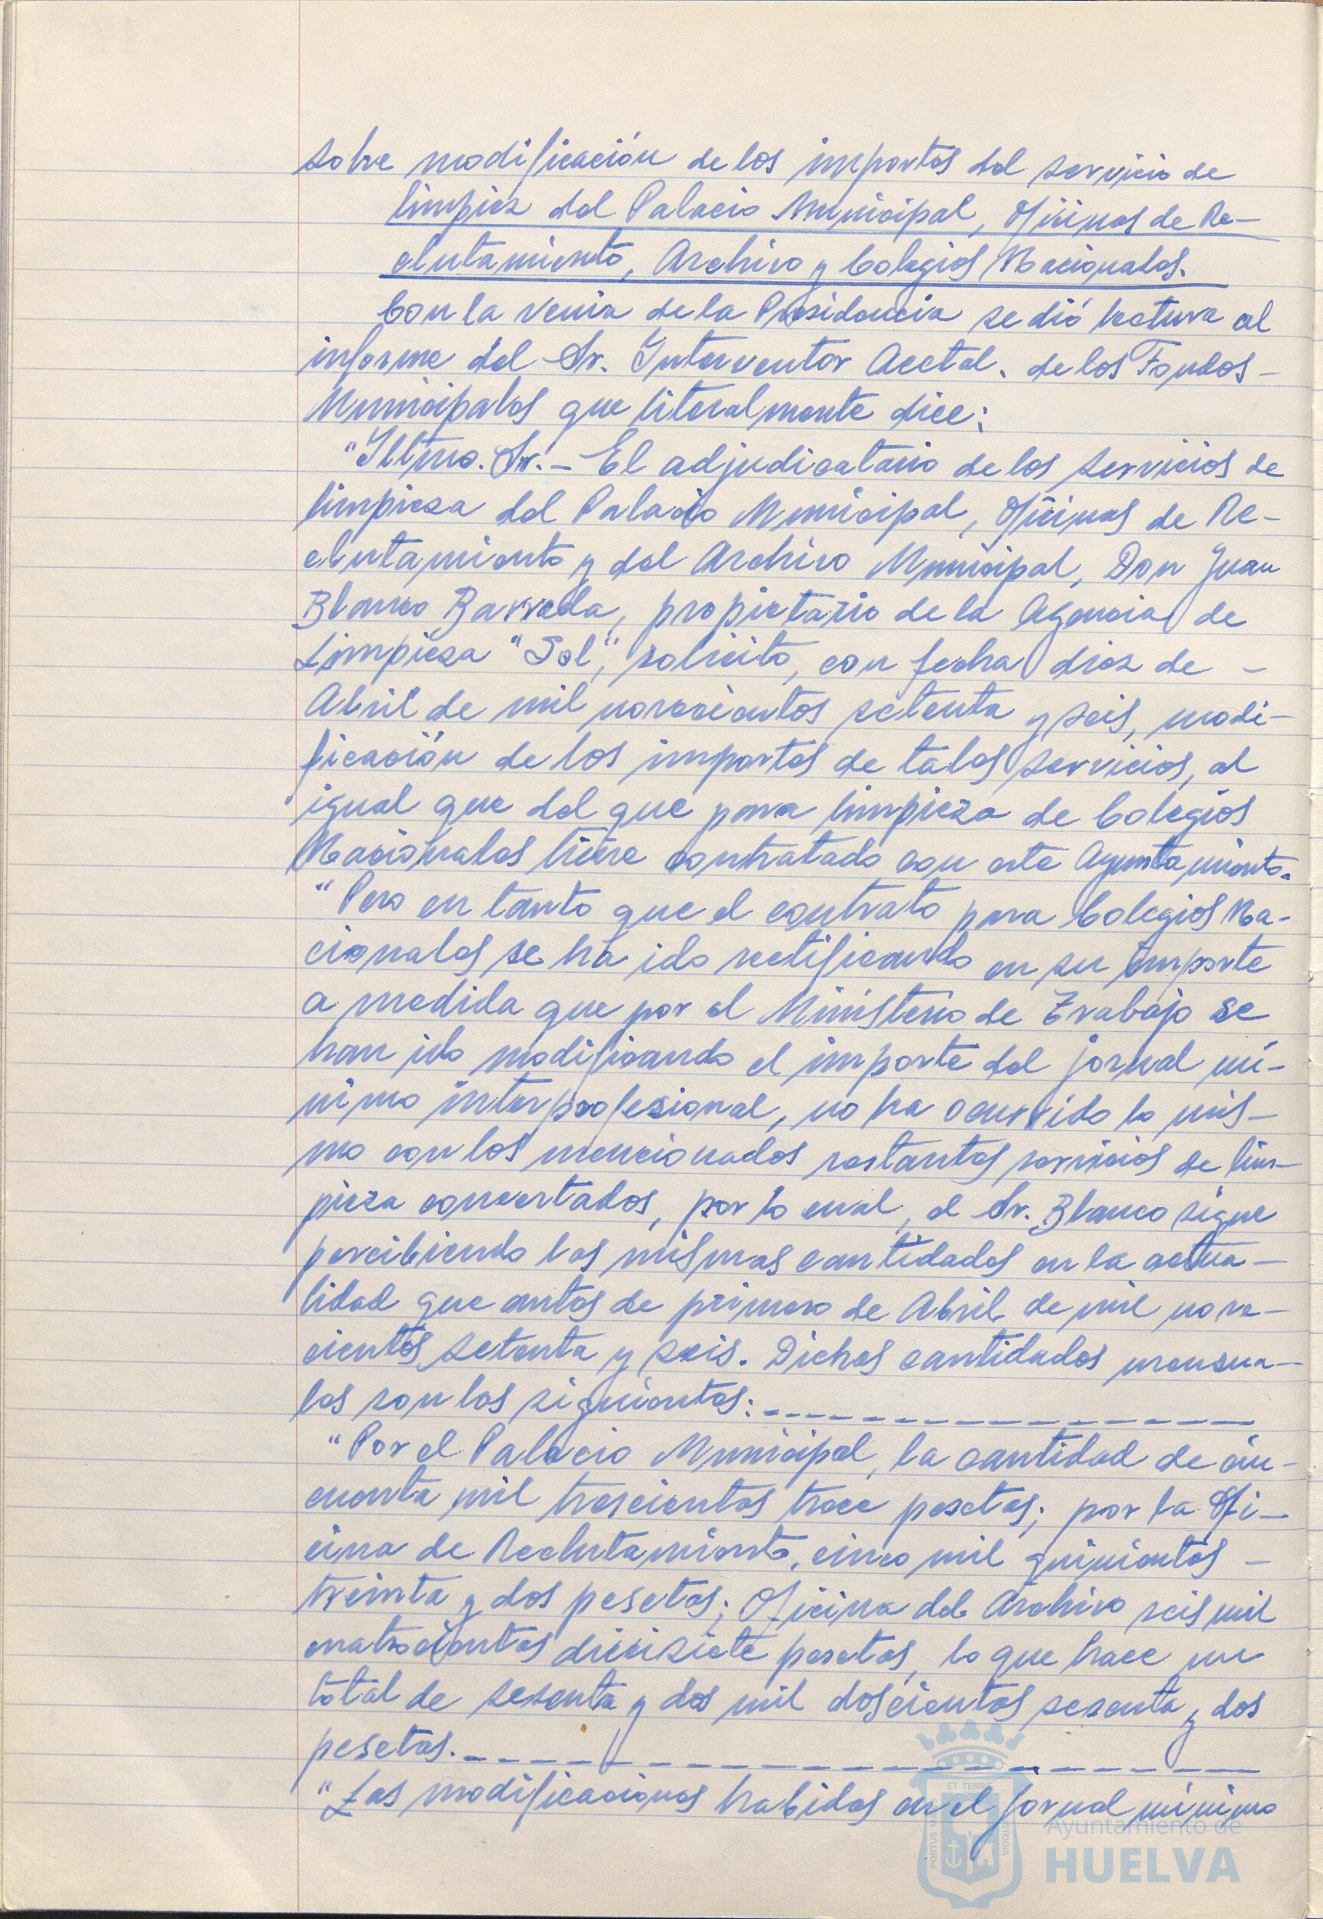 sobre modificación de los importes del servicio de
limpieza del Palacio Municipal, Oficinas de Re-
clutamiento, Archivo y Colegios Nacionales.
Con la venia de la Presidencia se dió lectura al
informe del Sr. Interventor Acctal. de los Fondos -
Municipales que literalmente dice:
"Iltmo. Sr.- El adjudicatario de los servicios de
limpieza del Palacio Municipal, Oficinas de Re-
clutamiento y del Archivo Municipal, Don Juan
Blanco Barreda, propietario de la Agencia de
Limpieza "Sol", solicitó, con fecha diez de -
Abril de mil novecientos setenta y seis, modi-
ficación de los importes de tales servicios, al
igual que del que para limpieza de Colegios
Nacionales tiene contratado con este Ayuntamiento.
"Pero en tanto que el contrato para Colegios Na-
cionales se ha ido rectificando en su importe
a medida que por el Ministerio de Trabajo se
han ido modificando el importe del jornal mí-
nimo interprofesional, no ha ocurrido lo mis-
mo con los mencionados restantes servicios de lim-
pieza concertados, por lo cual, el Sr. Blanco sigue
percibiendo las mismas cantidades en la actua-
lidad que antes de primero de Abril de mil nove-
cientos setenta y seis. Dichas cantidades mensua-
les son las siguientes: - - - - - - - - - - - - - - - -
"Por el Palacio Municipal, la cantidad de cin-
cuenta mil trescientas trece pesetas; por la Ofi-
cina de Reclutamiento, cinco mil quinientas -
treinta y dos pesetas; Oficina del Archivo seis mil
cuatrocientas diecisiete pesetas, lo que hace un
total de sesenta y dos mil doscientas sesenta y dos
pesetas. - - - - - - - - - - - - - - - - - - - - - -
"Las modificaciones habidas en el jornal mínimo
Ayuntamiento de
HUELVA